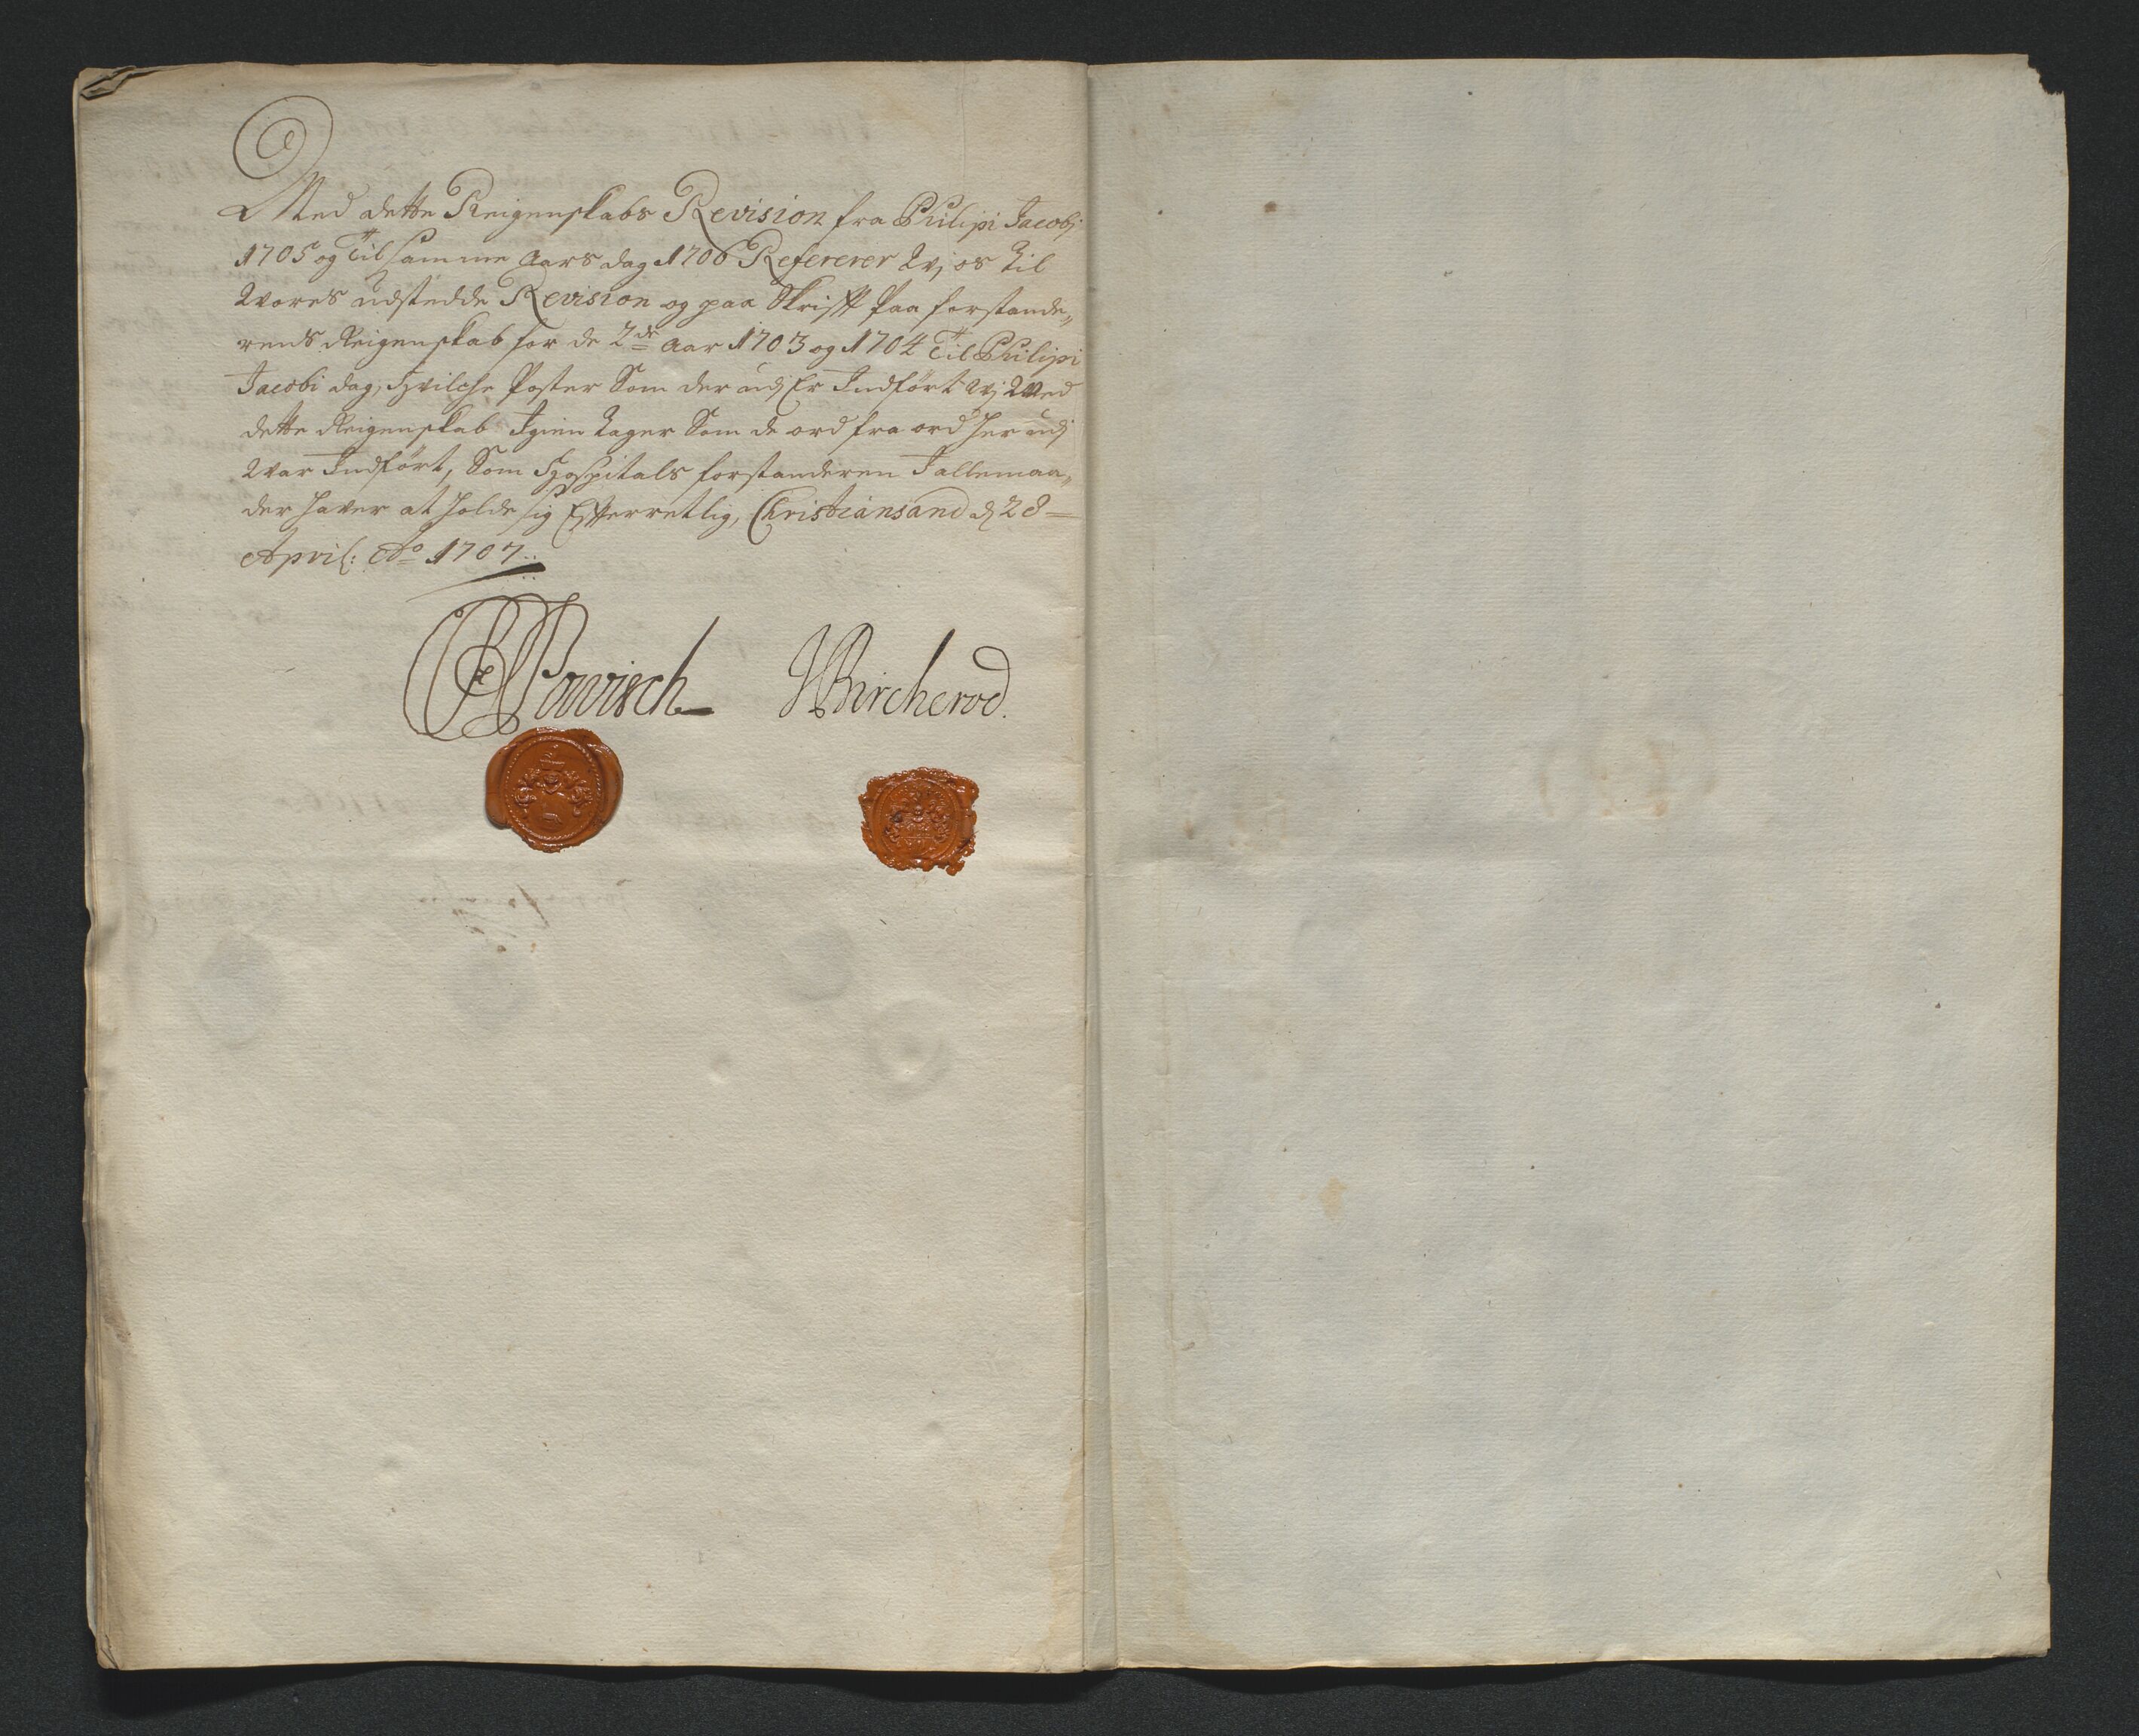 Med dette Reigenskabs Revision fra Philipi Jacobj
1705 og Til samme Aars dag 1706 Refererer Wj os til
Wores udstedde Revision og paa Skrifft Paa forstande„
rens Reigenskab for de 2de Aar 1703 og 1704 Til Philipi
Jacobi dag, Hvilche Poster Som der udj Er Indført Wj Wed
dette Reigenskab Igien tager Som de ord fra ord her udj
War Indført, Som Hospitals forstanderen I allemaa„
der haver at holde sig Efterretlig, Christiansand d 28
April: Ao 1707
Powisch JBircherod.